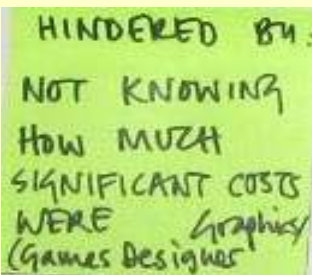 HINDERED BY:
NOT KNOWING
HOW MUCH
SIGNIFICANT COSTS
WERE Graphics/
(Games Designer